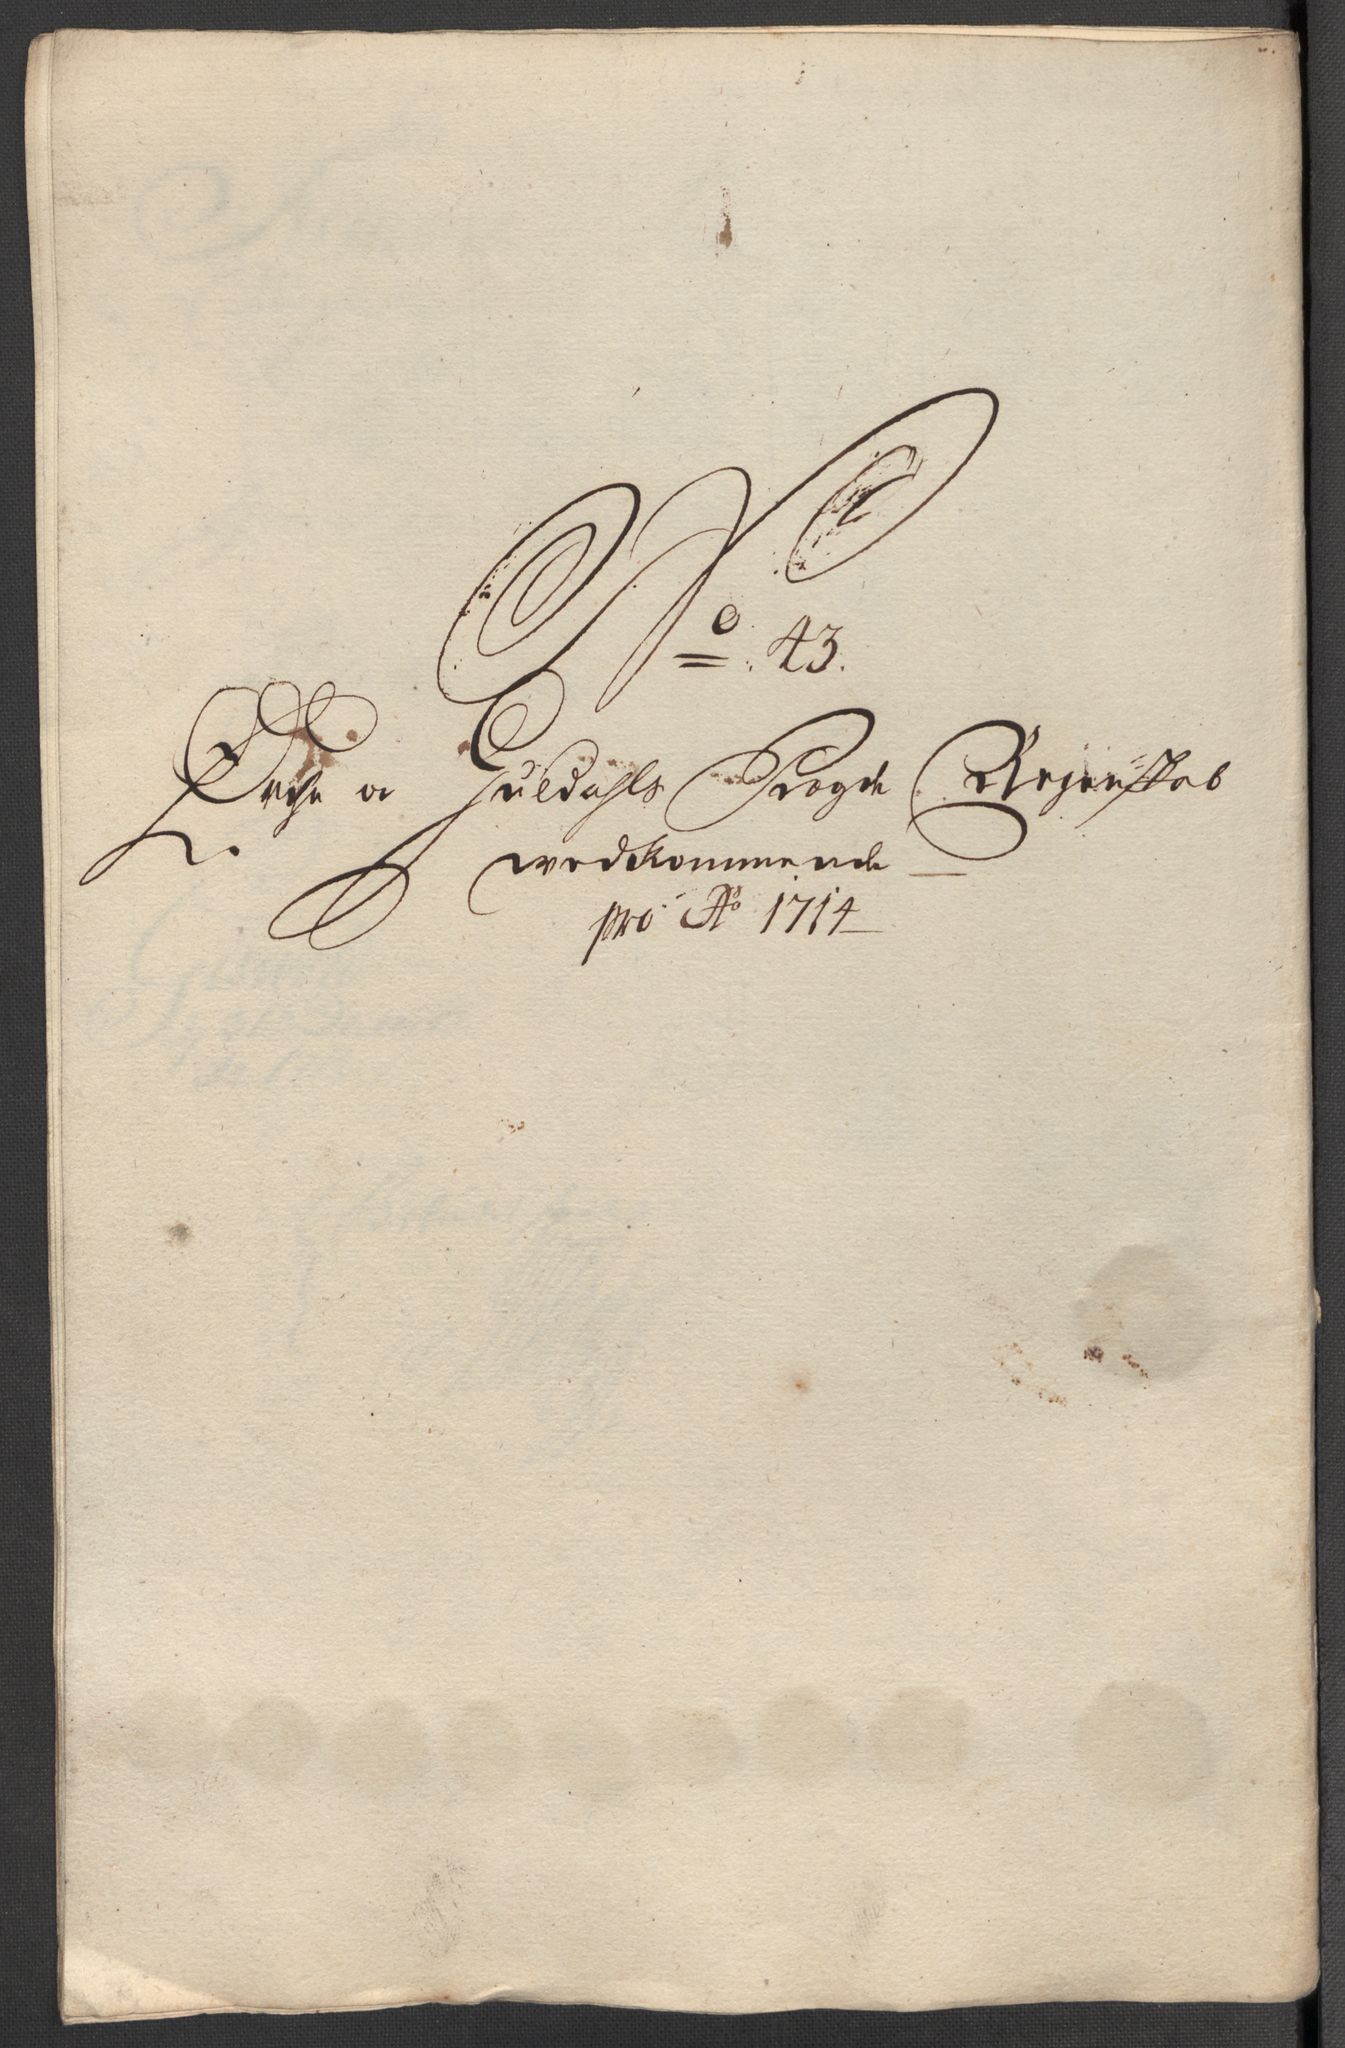 No. 43.
Orche oc Guldahls Fogde Regenskab
wedkommende
pro Ao 1714